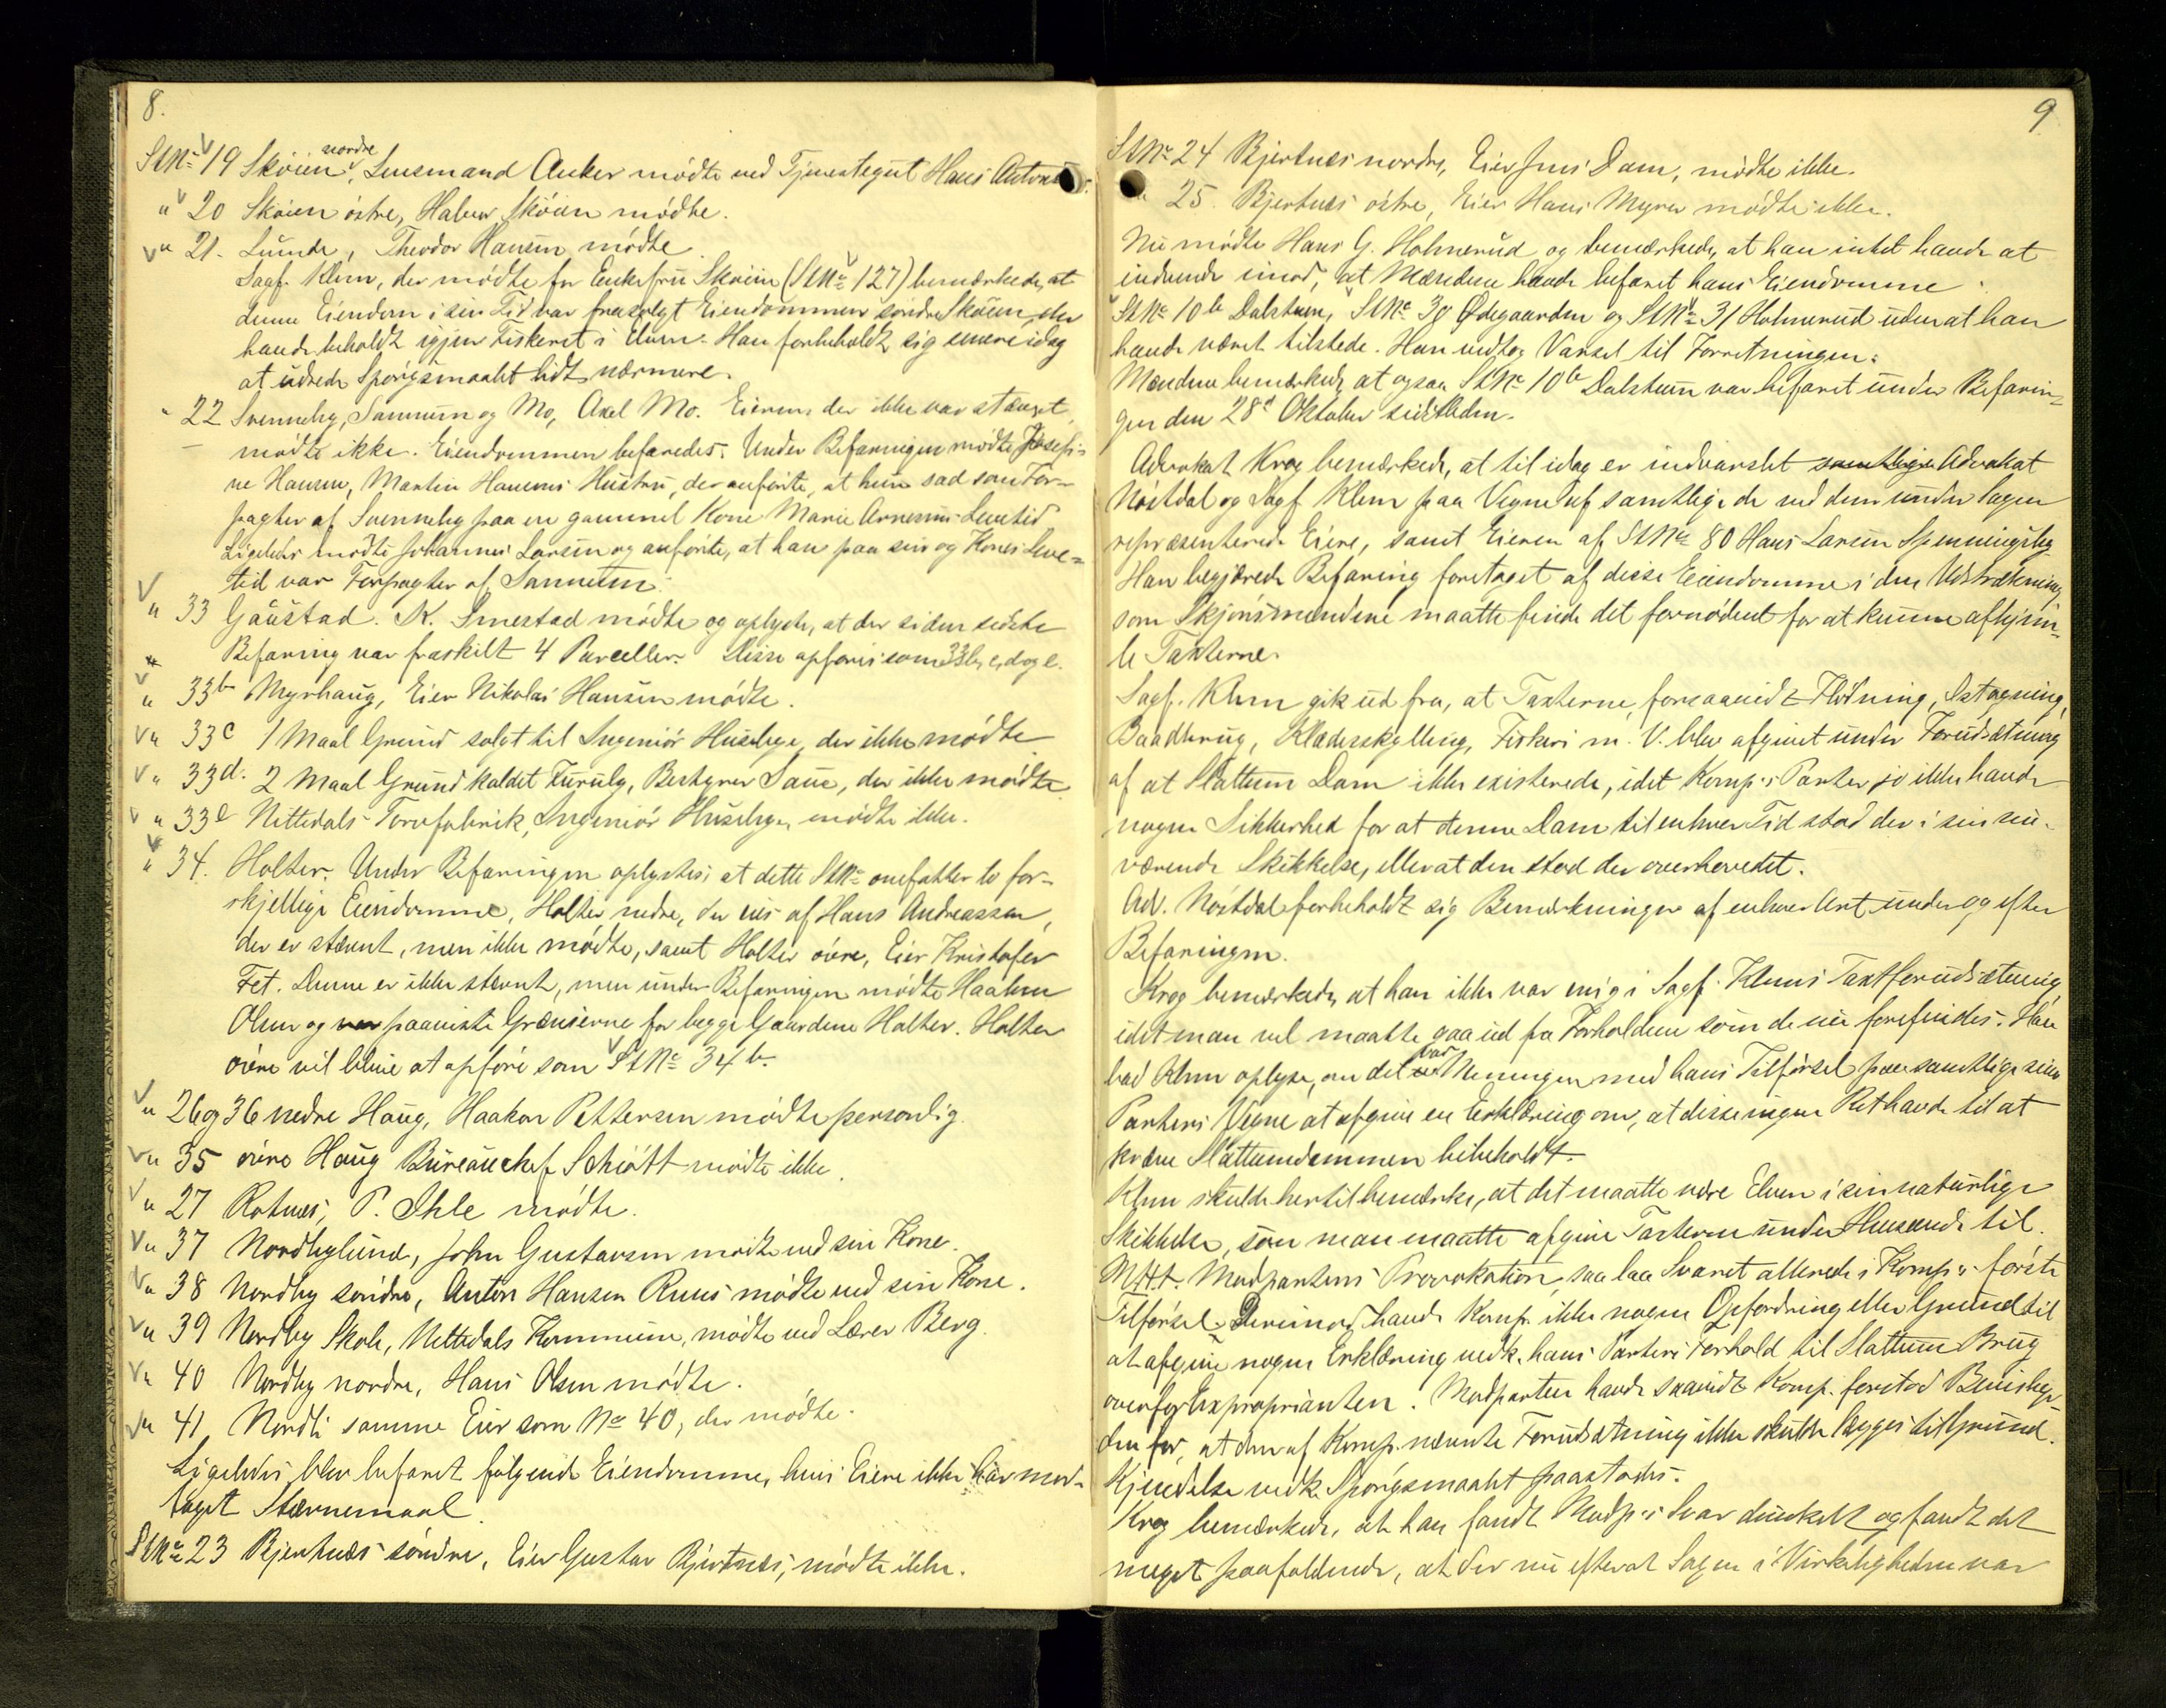 8.
StNo 19 Skøien nordre, Lensmand Anker mødte ved Tjenestegut Hans Anton
" 20 Skøien østre, Halvor Skøien mødte.
" 21. Lunde, Theodor Hansen mødte
Sagf. Klem, der mødte for Enkefru Skøien (StNo 127) bemærkede, at
denne Eiendom i sin Tid var frasolgt Eiendommen søndre Skøien, der
havde beholdt igjen Fiskeret i Elven. Han forbeholdt sig senere idag
at udrede Spørgsmaalet lidt nærmere.
" 22 Svenneby, Sannum og Mo, Axel Mo. Eieren, der ikke var stævnet,
mødte ikke. Eiendommen befaredes. Under Befaringen mødte Josefi-
ne Hansen, Martin Hansens Hustru, der anførte, at hun sad som For-
pagter af Svenneby paa en gammel Kone Marie Arnesens Levetid
Ligeledes mødte Johannes Larsen og anførte, at han paa sin og Kones Leve-
tid var Forpagter af Sannum.
" 33 Gaustad. K. Smestad mødte og oplyste, at der siden sidste
Befaring var fraskilt 4 Parceller. Disse opføres som 33 b, c, d og e.
" 33b Myrhaug, Eier Nikolai Hansen mødte.
" 33c 1 Maal Grund solgt til Ingeniør Huseby, der ikke mødte
" 33d. 2 Maal Grund kaldet Furuly, Bestyrer Saue, der ikke mødte
" 33e Nittedals Torvfabrik, Ingeniør Huseby, mødte ikke.
" 34. Holter. Under Befaringen oplystes, at dette StNo omfatter to for-
skjellige Eiendomme, Holter nedre, der eies af Hans Andreassen,
der er stævnt, men ikke mødte, samt Holter øvre, Eier Kristofer
Fet. Denne er ikke stævnt, men under Befaringen mødte Haaken
Olsen og paaviste Grænserne for begge Gaardene Holter. Holter
øvre vil blive at opføre som StNo 34b.
" 26 og 36 nedre Haug, Haakon Pettersen mødte personlig.
" 35 øvre Haug Bureauchef Schiøtt mødte ikke.
" 27 Rotnes, P. Ihle mødte.
" 37 Nordbylund, John Gustavsen mødte ved sin Kone.
" 38 Nordby søndre, Anton Hansen Ruus mødte ved sin Kone.
" 39 Nordby Skole, Nittedals Kommune, mødte ved Lærer Berg.
" 40 Nordby nordre, Hans Olsen mødte.
" 41 Nordli samme Eier som No 40, der mødte.
Ligeledes blev befaret følgende Eiendomme, hvis Eiere ikke har mod-
taget Stævnemaal.
StNo 23 Bjertnæs søndre, Eier Gustav Bjertnæs, mødte ikke.
9
StNo 24 Bjertnæs nordre, Eier Jens Dam, mødte ikke.
" 25. Bjertnæs østre, Eier Hans Myrer mødte ikke.
Nu mødte Hans G. Holmerud og bemærkede, at han intet havde at
indvende imod, at Mændene havde befaret hans Eiendomme
StNo 10b Dalstuen, StNo 30 Ødegaarden og StNo 31 Holmerud uden at han
havde været tilstede. Han vedtog Varsel til Forretningen.
Mændene bemærkede at ogsaa StNo 10b Dalstuen var befaret under Befarin-
gen den 28d Oktober sidstleden.
Advokat Krog bemærkede, at til idag er indvarslet samtlige Advokat
Nøstdal og Sagf. Klem paa Vegne af samtlige de ved dem under Sagen
repræsenterede Eiere, samt Eieren af StNo 80 Hans Larsen Spenningsby
Han begjærede Befaring foretaget af disse Eiendomme i den Udstrækning
som Skjønsmændene maatte finde det fornødent for at kunne afhjem-
le Taxterne.
Sagf. Klem gik ud fra, at Taxterne, forsaavidt Fløtning, Istagning,
Baadbrug, Klædesskylling, Fiskeri m. V. blev afgivet under Forudsætning
af at Slattum Dam ikke existerede, idet Komp.s Parter jo ikke havde
nogen Sikkerhed for at denne Dam til enhver Tid stod der i sin nu-
værende Skikkelse, eller at den stod der overhovedet.
Adv. Nøstdal forbeholdt sig Bemærkninger af enhver Art under og efter
Befaringen.
Krog bemærkede, at han ikke var enig i Sagf. Klems Taxtforudsætning,
idet man vel maatte gaa ud fra Forholdene som de nu forefindes. Han
bad Klem oplyse, om det var Meningen med hans Tilførsel paa samtlige sine
Parters Vegne at afgive en Erklæring om, at disse ingen Ret havde til at
kræve Slattumdammen bibeholdt.
Klem skulde hertil bemærke, at det maatte være Elven i sin naturlige
Skikkelse, som man maatte afgive Taxterne under Hensende til.
M.H.t. Modpartens Provokation, saa laa Svaret allerede i Komp.s første
Tilførsel. Derimod havde Komp. ikke nogen Opfordring eller Grund til
at afgive nogen Erklæring vedk. hans Parters Forhold til Slattum Brug
overfor Exproprianten. Modparten havde saavidt Komp. forstod Bevisbyr-
den for, at den af Komp. nævnte Forudsætning ikke skulde lægges til Grund.
Kjendelse vedk. Spørgsmaalet paastodes.
Krog bemærkede, at han fandt Modp.s Svar dunkelt og fandt det
meget paafaldende, at der nu efterat Sagen i Virkeligheden var